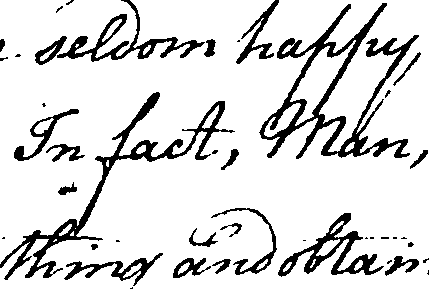 seldom happy,
In fact, Man,
thing and obtain